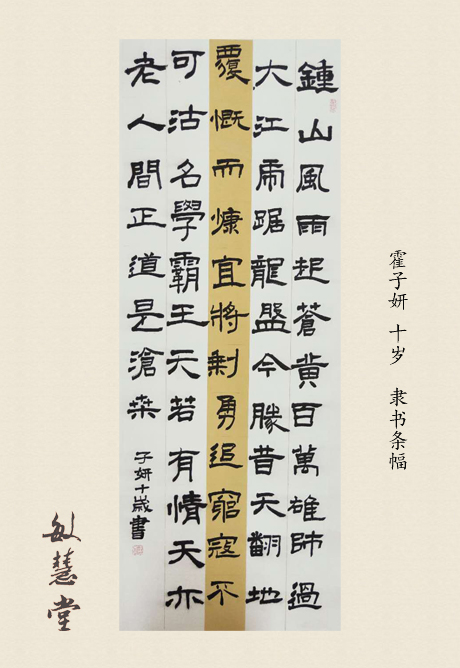 霍子妍 十岁 隶书条幅
鍾山風雨起蒼黃百萬雄師過
大江虎踞龍盤今勝昔天翻地
覆慨而慷宜將剩勇追窮寇不
可沽名學霸王天若有情天亦
老人間正道是滄桑
子妍十歲書
敏慧堂